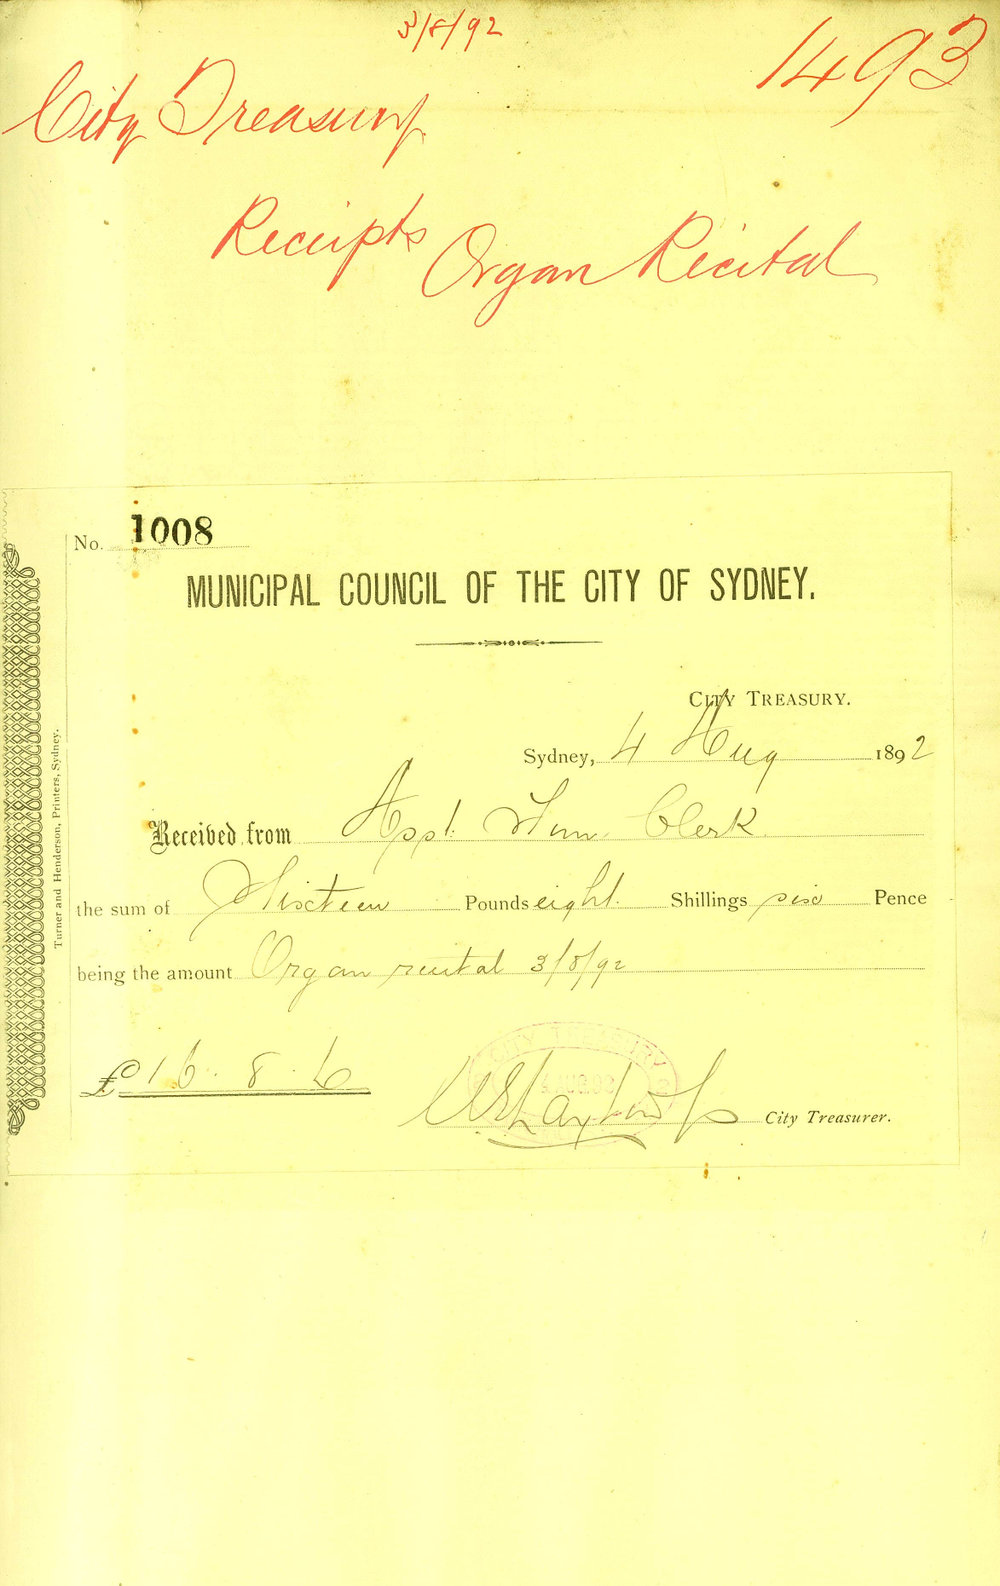 3/8/92
1493
City Treasury
Receipts Organ Recital
No. 1008
MUNICIPAL COUNCIL OF THE CITY OF SYDNEY.
CITY TREASURY.
Sydney, 4 Aug 1892
Received from Asst. Town Clerk
the sum of Sixteen Pounds eight Shillings six Pence
being the amount Organ recital 3/8/92
£16.8.6
CITY TREASURY
4 AUG 92
City Treasurer.
Turner and Henderson, Printers, Sydney.